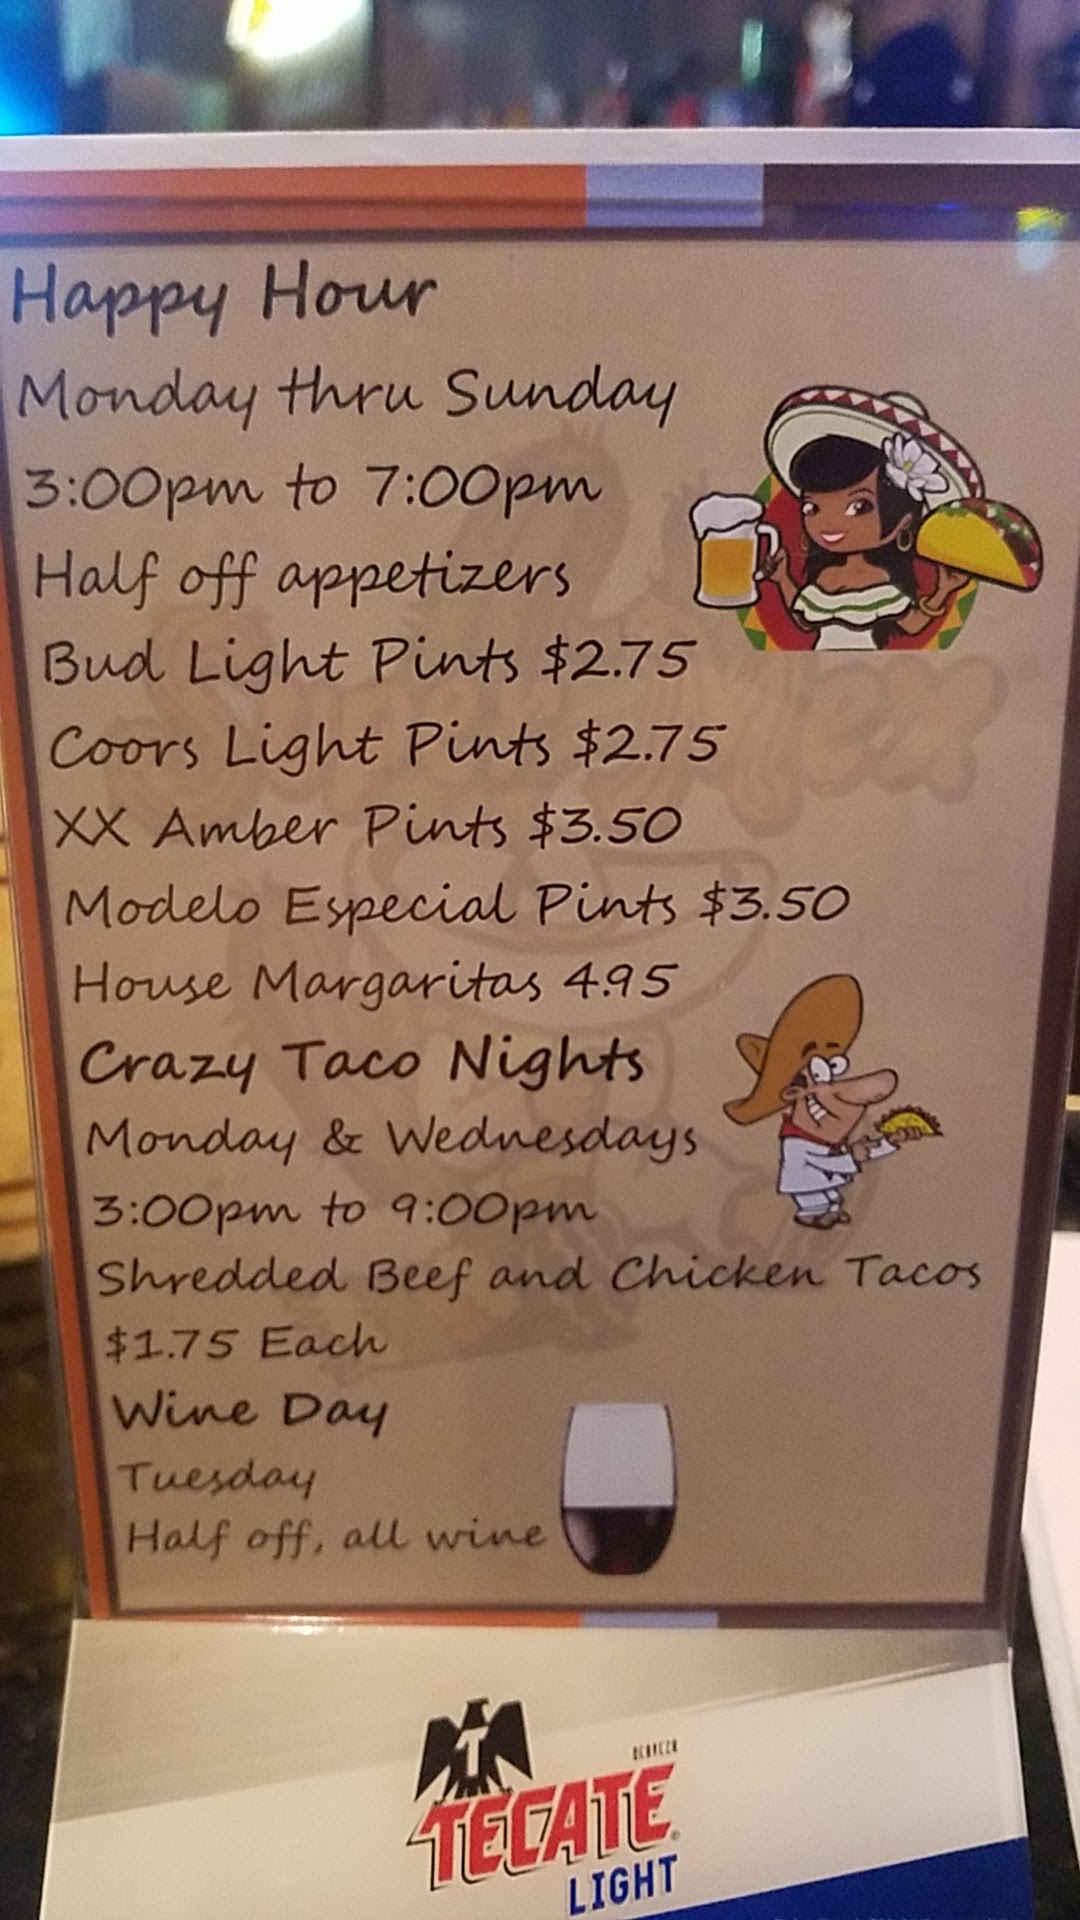 Happy Hour
Monday thru Sunday
3:00pm to 7:00pm
Half off appetizers
Bud Light Pints $2.75
Coors Light Pints $2.75
XX Amber Pints $3.50
Modelo Especial Pints $3.50
House Margaritas 4.95
Crazy Taco Nights
Monday & Wednesdays
3:00pm to 9:00pm
Shredded Beef and Chicken Tacos
$1.75 Each
Wine Day
Tuesday
Half off, all wine
T
CERVEZA
TECATE
LIGHT